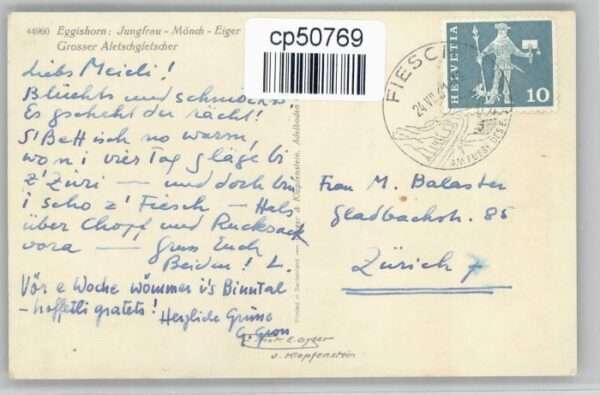 44960 Eggishorn: Jungfrau - Mönch - Eiger
Grosser Aletschgletscher
cp50769
HELVETIA
10
FIESCH
24.VII.
AM FUSSE DES E
Liebs Meieli!
Blüehts und schneits
Es gscheht der rächt!
S'Bett isch no warm,
wo n i vier Tag gläge bi
z'Züri — und doch bin
i scho z'Fiesch — Hals
über Chopf und Rucksack
vora — Gruss Euch
Beiden! L.
Vor e Woche wömmer i's Binntal
- hoffetli gratets!
Herzliche Grüsse
G.
Frau M. Balaster
Gladbachstr. 85
Zürich 7
Klopfenstein, Adelboden
Printed in Switzerland
E. Gyger
u. Klopfenstein